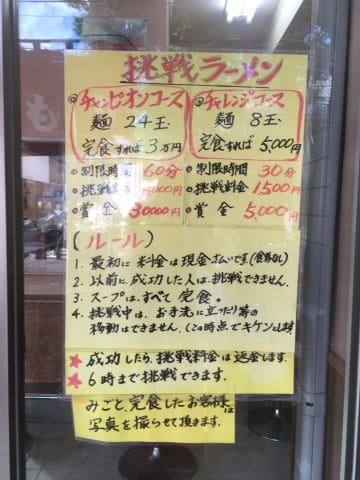 も
挑戦ラーメン
チャンピオンコース
麺 24玉
完食すれば 3万円
チャレンジコース
麺 8玉
完食すれば 5,000円
・制限時間 60分
・挑戦料金
・賞金 30000円
・制限時間 30分
・挑戦料金 1,500円
・賞金 5,000円
(ルール)
1. 最初に料金は現金払いです。
2. 以前に成功した人は挑戦できません。
3. スープはすべて完食。
4. 挑戦中は、お手洗に立ったり等の
移動はできません。(この時点でキケンとします)
★成功したら、挑戦料金は返金します。
★6時まで挑戦できます。
みごと、完食したお客様は
写真を撮らせて頂きます。